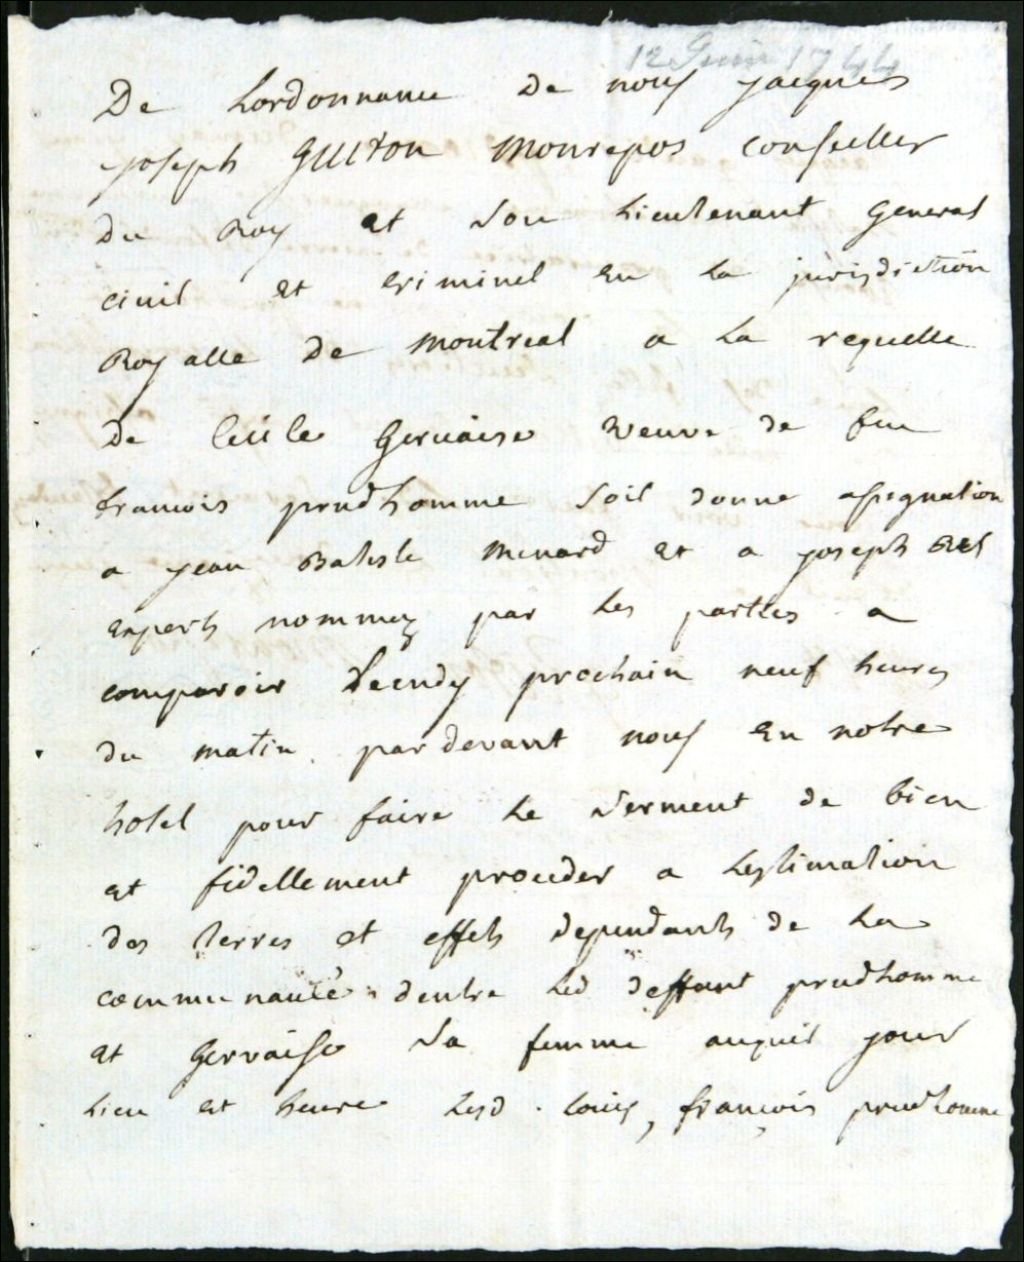 12 Juin 1744
De Lordonnance de nous jacques
joseph Guiton Monrepos conseiller
du Roy et son Lieutenant General
civil et criminel en La jurisdiction
Royalle de Montreal a La requette
de Cecile Gervaise veuve de feu
francois prudhomme soit donne assignation
a jean Batiste Menard et a joseph
experts nommez par Les parties a
comparoir Leundy prochain neuf heures
du matin pardevant nous En notre
hotel pour faire Le serment de bien
et fidellement proceder a Lestimation
des terres et effets dependants de La
communauté dentre Led deffunt prudhomme
et Gervaise sa femme auquel jour
Lieu et heure Lesd. Louis, francois prudhomme